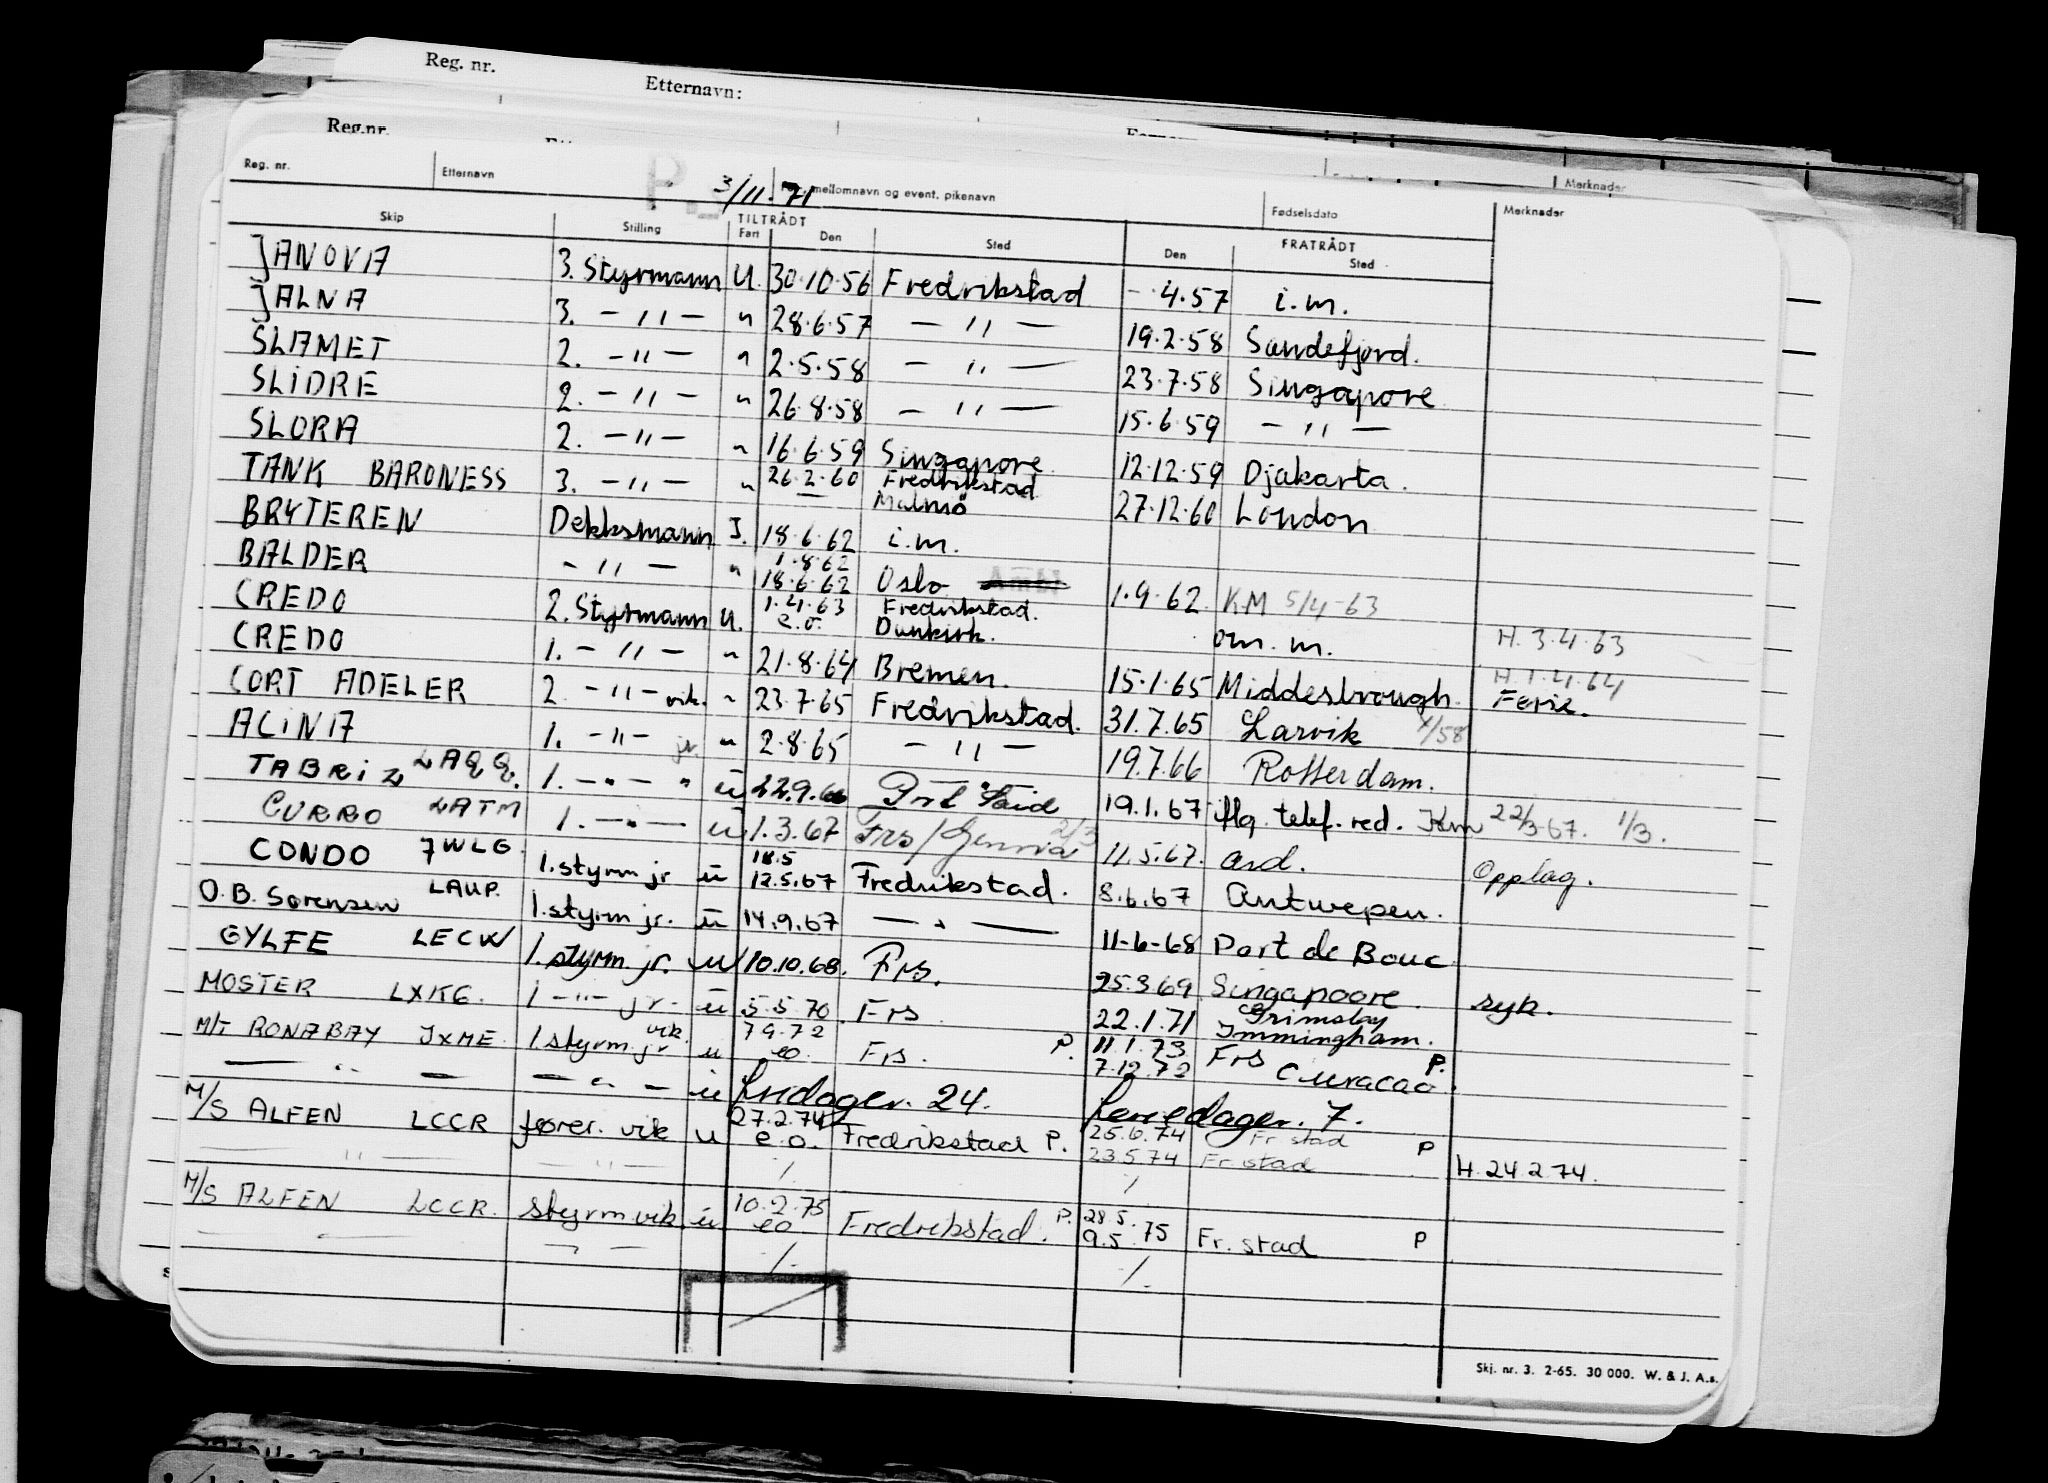 Reg. nr.
Etternavn:
Reg.nr.
Merknader
Reg. nr. Etternavn P. 3/11.71 mellomnavn og event. pikenavn Fødselsdato Merknader
Skip Stilling TILTRÅDT FRATRÅDT
Fart Den Sted Den Sted
JANOVA 3. Styrmann U. 30.10.56 Fredrikstad - .4.57 i.m.
JALNA 3. - " - " 28.6.57 - " - 19.2.58 Sandefjord.
SLAMET 2. - " - " 2.5.58 - " - 23.7.58 Singapore
SLIDRE 2. - " - " 26.8.58 - " - 15.6.59 - " -
SLORA 2. - " - " 16.6.59 Singapore 12.12.59 Djakarta.
TANK BARONESS 3. - " - " 26.2.60 Fredrikstad 27.12.60 London
— Malmö
BRYTEREN Dekksmann I. 18.6.62 i.m.
BALDER - " - " 1.8.62
18.6.62 Oslo 1.9.62 KM 5/4-63
CREDO 2. Styrmann U. 1.4.63 Fredrikstad. om. m. H. 3.4.63
e.o. Dunkirk.
CREDO 1. - " - " 21.8.64 Bremen. 15.1.65 Middesbrough H. 1.4.64
Ferie.
CORT ADELER 2. - " - vik. " 23.7.65 Fredrikstad. 31.7.65 Larvik
ALINA 1. - " - jr. " 2.8.65 - " - 19.7.66 Rotterdam.
TABRIZ LAQQ. 1. - " - " u 22.9.66 Port Said 19.1.67 iflg. telef. red. Km 22/3-67. 1/3.
CUBBO LATM 1. - " - u 1.3.67 Frs/Genova 2/3 11.5.67. and. Opplag.
CONDO JWLG. 1. styrm jr u 18.5
12.5.67 Fredrikstad. 8.6.67 Antwepen.
O.B. Sørensen LAUP. 1. styrm jr. u 14.9.67 — " — 11-6-68 Port de Bouc
GYLFE LECW 1. styrm. jr. u 10.10.68. Frs. 25.3.69 Singapoore. syk.
MOSTER LXKG. 1 - " - jr. u 5.5.70 Frs 22.1.71 Grimsby
Immingham.
M/T RONABAY JXME. 1 styrm. jr vik. u 7.9.72
eo. Frs. P. 11.1.73 Frs P.
7.12.72 Curacao.
— " — — " — u Fridager. 24. Feriedager. 7.
M/S ALFEN LCCR fører. vik u 27.2.74
e.o. Fredrikstad P. 25.6.74 Fr stad P
23.5.74 Fr. stad H. 24.2.74.
— " — — " — /. /
M/S ALFEN LCCR. styrm vik. u 10.2.75
eo Fredrikstad. P. 28.5.
9.5.75 Fr. stad P
— " — — " — /. /.
Skj. nr. 3. 2-65. 30 000. W. & J. A.s.